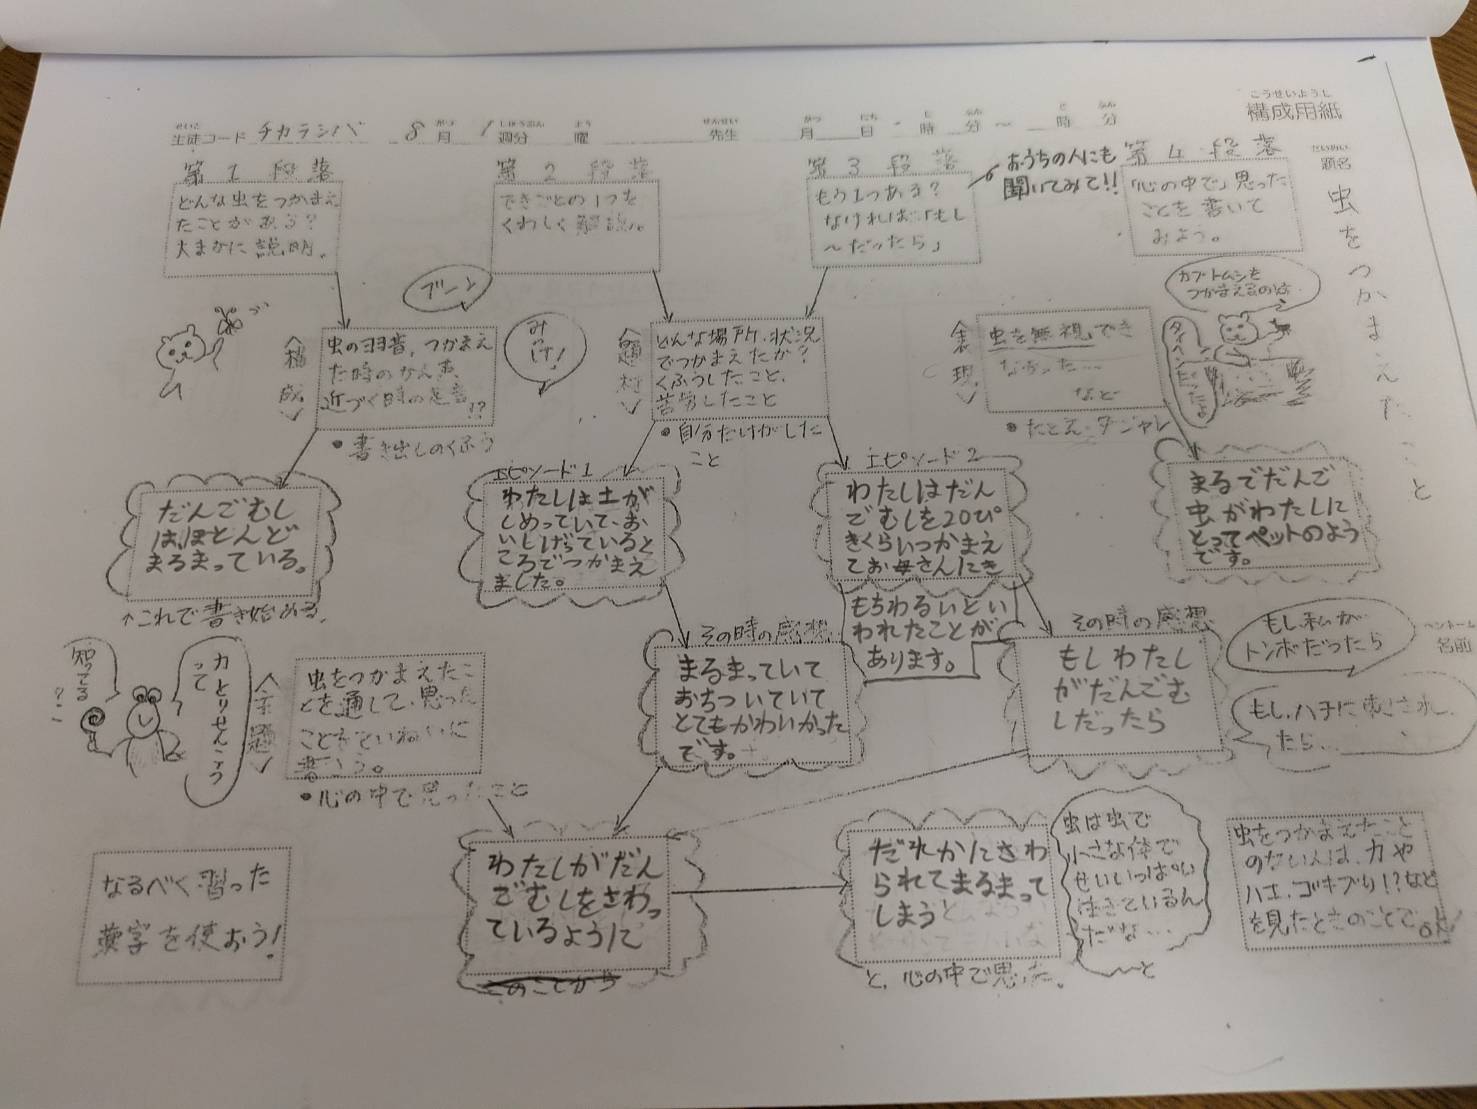 こうせいようし
構成用紙
せいと
生徒コード チカラシバ 8月 1週分 曜 先生 月 日・時 分〜 時 分
だいめい
題名
虫をつかまえたこと
第1段落
どんな虫をつかまえ
たことがある?
大まかに説明。
第2段落
できごとの1つを
くわしく解説。
第3段落
もう1つある?
なければ「もし
〜だったら」
おうちの人にも
聞いてみて!!
第4段落
「心の中で」思った
ことを書いて
みよう。
ブーン
みっけ!
カブトムシを
つかまえるのは
タイヘンだったよ
<構成>
虫の羽音、つかまえ
た時のかん声、
近づく時の足音!?
•書き出しのくふう
<題材>
どんな場所、状況
でつかまえたか?
くふうしたこと、
苦労したこと
•自分だけがした
こと
<表現>
虫を無視でき
なかった…
など
•たとえ・ダジャレ
だんでむし
は、ほとんど
まるまっている。
↑これで書き始める。
エピソード1
わたしは土が
しめっていて、お
いしげっていると
ころでつかまえ
ました。
エピソード2
わたしはだん
でむしを20ぴ
きくらいつかまえ
てお母さんにき
もちわるいとい
われたことが
あります。
まるでだんで
虫がわたしに
とってペットのよう
です。
知ってる
?
カとりせんこう
って
<主題>
虫をつかまえたこ
とを通して、思った
ことをていねいに
書こう。
•心の中で思ったこと
その時の感想
まるまっていて
おちついていて
とてもかわいかった
です。
その時の感想
もしわたし
がだんごむ
しだったら
もし私が
トンボだったら
もし、ハチにさされ
たら…
ペンネーム
名前
なるべく習った
漢字を使おう!
わたしがだん
ごむしをさわっ
ているように
このことから
だれかにさわ
られてまるまって
しまう
と、心の中で思った。
虫は虫で
小さな体で
せいいっぱい
生きているん
だな…
〜と
虫をつかまえたこと
のない人は、カや
ハエ、ゴキブリ!?など
を見たときのことでOK!